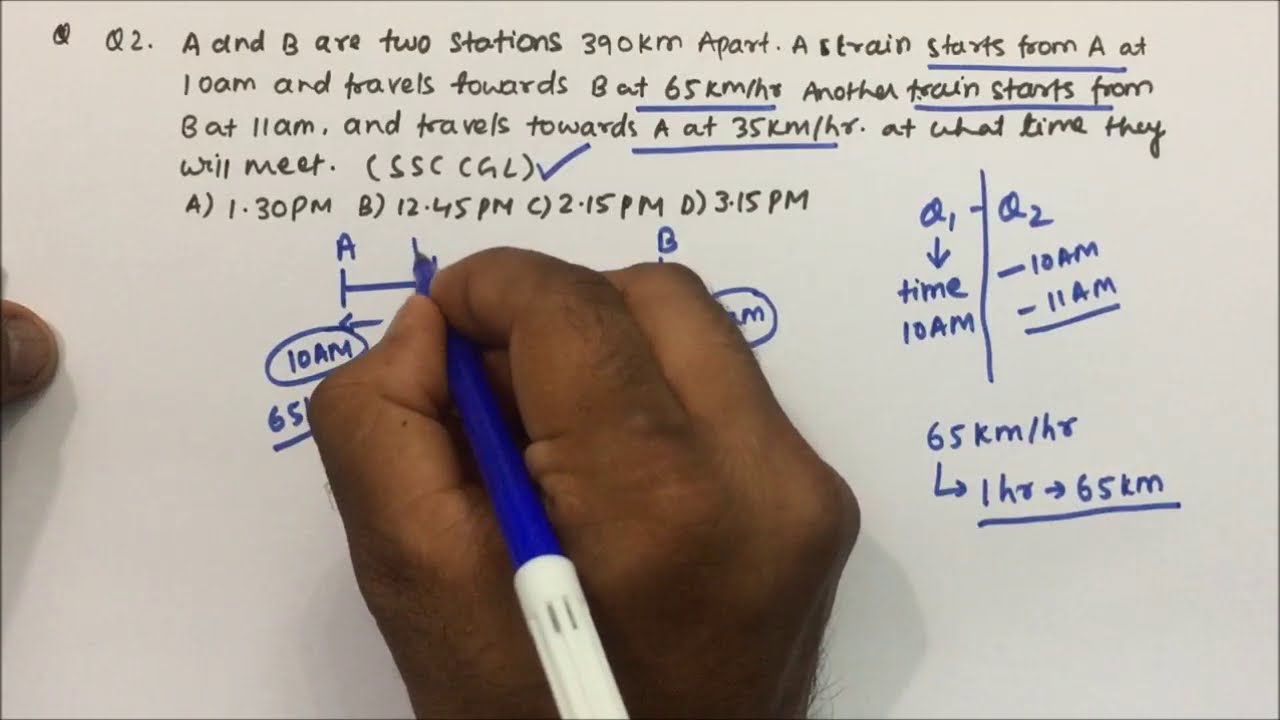 Q Q2. A and B are two stations 390km Apart. A strain starts from A at
10am and travels towards B at 65km/hr Another train starts from
B at 11am, and travels towards A at 35km/hr. at what time they
will meet. (SSC CGL)
A) 1.30PM B) 12.45PM C) 2.15PM D) 3.15PM
A B
10AM
Q1 - Q2
↓
time
10AM
- 10AM
- 11AM
65km/hr
↳ 1hr → 65km